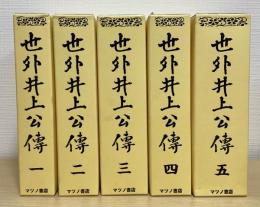 世外井上公傳 一
マツノ書店
世外井上公傳 二
マツノ書店
世外井上公傳 三
マツノ書店
世外井上公傳 四
マツノ書店
世外井上公傳 五
マツノ書店